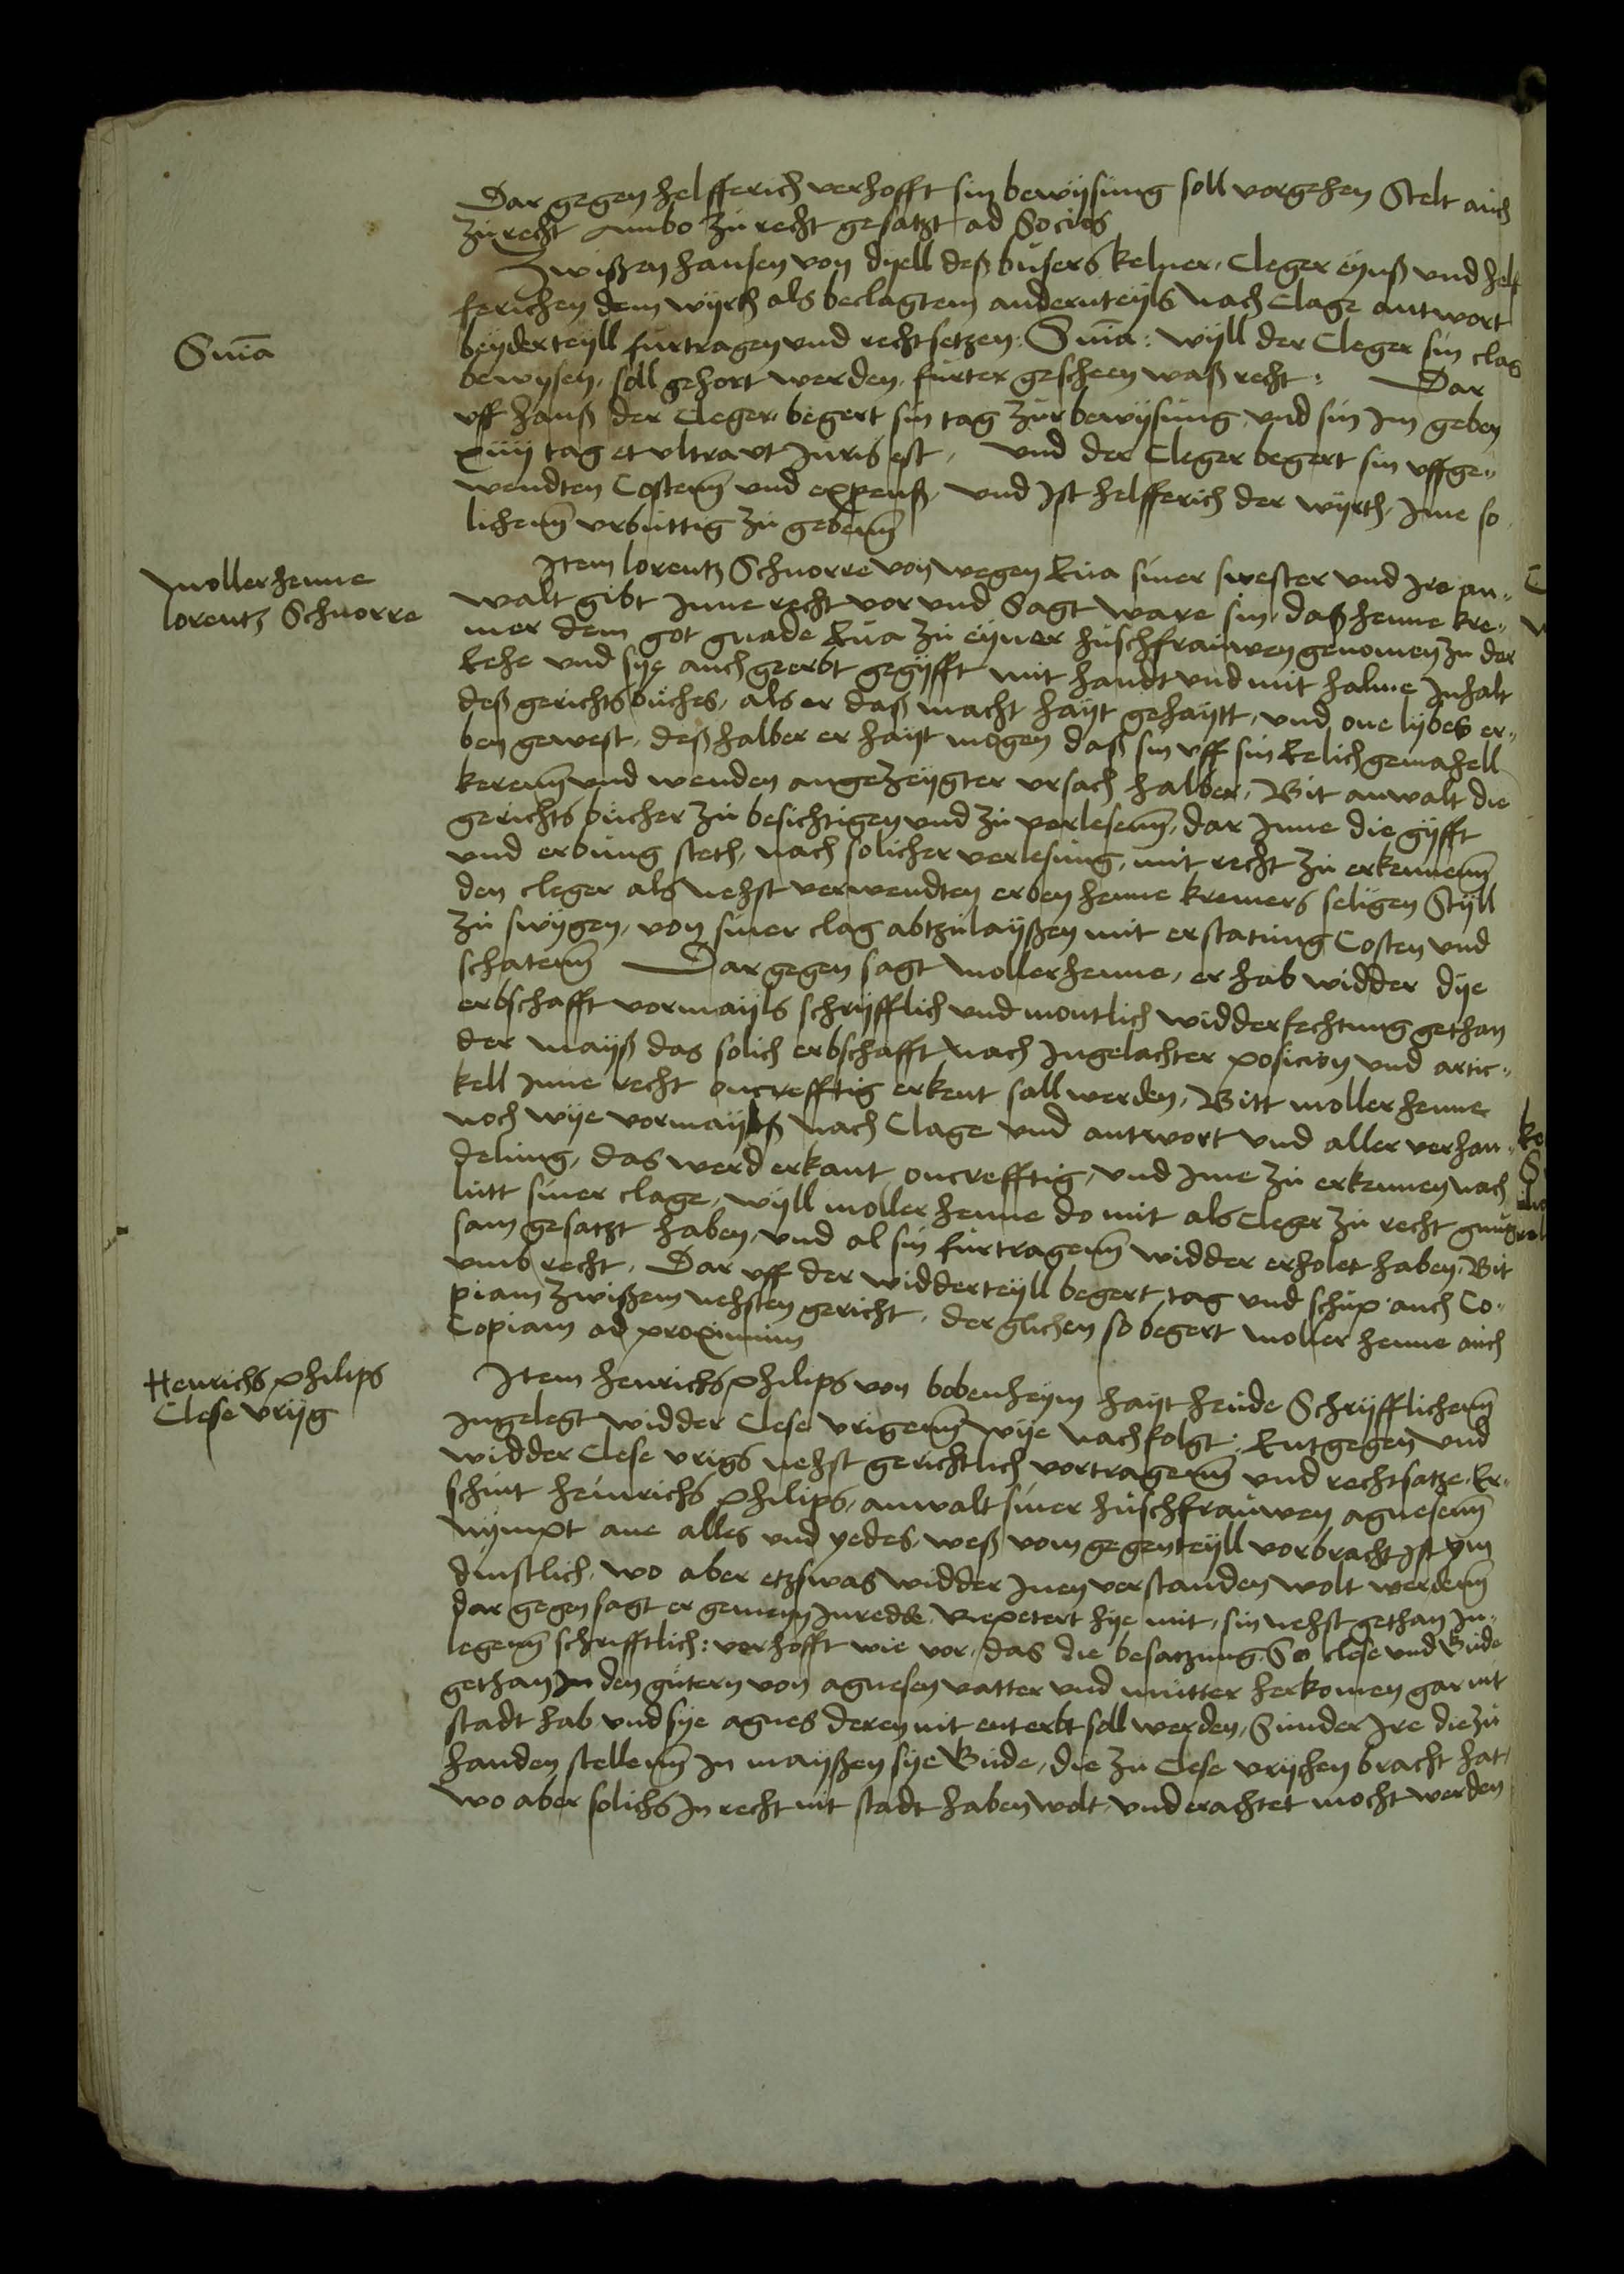 Dar gegen helfferich verhofft sin bewysung soll vorgehen Stelt auch
zu recht Ambo zu recht gesatzt ad Socios
Zwißen hansen von dyell deß busers kelner, Cleger eynß und helf
ferichen dem wyrth als beclagtem andernteyls Nach Clage antwort
Snia
beyder teyll furtragen und rechtsetzen: Snia: wyll der Cleger sin clag
bewysen, soll gehort werden, furter gescheen waß recht: Dar
uff hanß der Cleger begert sin tag zur bewysung und sin Im geben
xiiij tag et ultra ut Juris est, und der Cleger begert sin uffge„
wendten Costenn und expenß, und Ist helfferich der wyrth, Ime so
lichenn urbuttig zu gebenn
Mollerhenne
Lorentz Schnorre
Item lorentz Schnorre von wegen Eua siner swester und Ire an„
walt gibt Inne recht vor und Sagt ware sin, daß henne kre„
mer dem got gnade Eua zu eyner huschfrauwen genomen zu der
Eehe und sye auch geerbt gegyfft mit handt und mit halme Inhalt
deß gerichts buches, als er daß macht hayt gehaytt, und one lybes er„
ben gewest, deßhalber er hayt mogen daß sin uff sin Eelich gemahell
kerenn und wenden angezeygter ursach halber, Bit anwalt die
gerichts bucher zu besichtigen und zu verlesenn, dar Inne die gyfft
und erbung steth, nach solicher verlesung, mit recht zu erkennenn
den cleger als nehst verwendten erben henne kremers seligen Styll
zu swygen, von siner clag abtzulayßen mit erstatung Costen und
schatenn Dar gegen sagt Mollerhenne, er hab widder dye
erbschafft vormayls schryfftlich und montlich widderfechtung gethan
der mayß das solich erbschafft nach Ingelachter posicion und artic„
kell Inne recht oncrefftig erkent soll werden, Bitt mollerhenne
noch wye vormaylß nach Clage und antwort und aller verhan„
delung, das werd erkant oncrefftig, und Ime zu erkennen nach
lutt siner clage, wyll mollerhenne do mit als Cleger zu recht gnug
sam gesatzt haben, und al sin furtragenn widder erholet haben, Bit
umb recht, Dar uff der widderteyll begert tag und schup auch Co„
piam zwißem nehsten gericht, der glichen so begert moller henne auch
Copiam ad proximum
Henrichs philips
Clese vryg
Item henrichs philips von bobenheym hayt heude Schryfftlichenn
Ingelegt widder Clese vrigenn wye nachfolgt: Entgegen und
widder Clese vrigs nehst gerichtlich vortragenn und rechtsatze, Er„
schint heinrichs philips, anwalt siner huschfrauwen agnesenn
Nympt ane alles und yedes, weß vom gegenteyll vorbracht Ist Ym
dinstlich, wo aber etzswas widder Inen verstanden wolt werdenn
dar gegen sagt er gemeyn Inredde, Repetert hye mit, sin nehst gethan In„
legenn schrifftlich: verhofft wie vor, das die besatzung, So clese und Bude
gethan In den gutern von agnesen vatter und mutter herkomen gar nit
stadt hab und sye agnes deren nit enterbt soll werden, Sunder Ire die zu
handen stellenn In mayßen sye Bude, die zu Clese vrychen bracht hat,
wo aber solichs In recht nit stadt haben wolt, und erachtet mocht werden